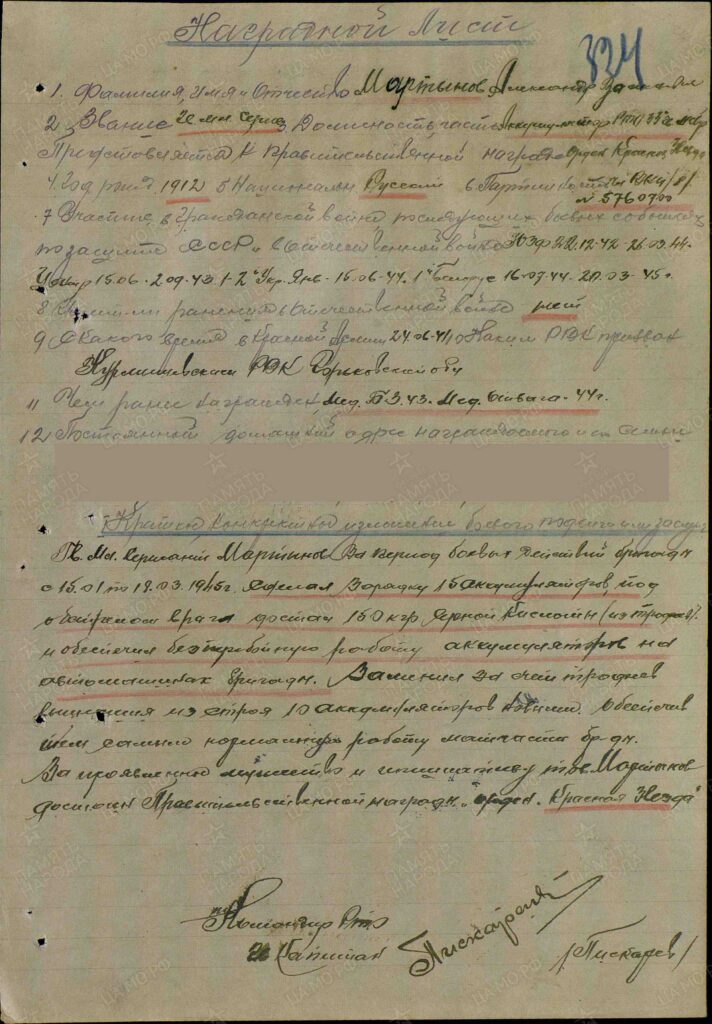 Наградной Лист
334
1. Фамилия, Имя и Отчество Мартынов Александр
2 Звание Гв. мл. Серж. 3 Должность, часть аккумулятор РТО
Представляется к Правительственной награде Орден Красная Звезда
4. Год рожд. 1912 5 Национальн. Русский 6 Партийность
N 5760700
7 Участие в Гражданской войне, последующих боевых событиях
по защите СССР и в Отечественной войне ЮЗФ 22.12.42 - 26.03.44.
15.06. - 2.09.43 1-2 Укр. 15.06-44. 1 Белорус 16-07-44-
8 Имеет ли ранения в Отечественной войне нет
9 С какого времени в Красной Армии 24.06.41 10 Каким РВК призван
Курмышевским РВК Горьковской обл
11 Чем ранее награжден, Мед. БЗ. 43. Мед. Отвага - 44 г.
12 Постоянный домашний адрес награждаемого и его семьи
Краткое конкретное изложение боевого подвига или заслуг
Гв. Мл. Сержант Мартынов За период боевых действий бригады
с 15.01 по 1945г. сделал Зарядку 15 аккумуляторов, под
обстрелом врага достал 150 кгр. серной Кислоты (из трофей).
и обеспечил бесперебойную работу аккумуляторов на
автомашинах бригады. Заменил за счет трофеев
вышедших из строя 10 аккумуляторов новыми. Обеспечив
тем самым нормальную работу матчасти бр-ды.
За проявленное мужество и инициативу тов. Мартынов
достоин Правительственной награды. "орден "Красная Звезда"
Командир РТО
Гв Капитан Пискарев /Пискарев/
ПАМЯТЬ НАРОДА
ЦАМО РФ